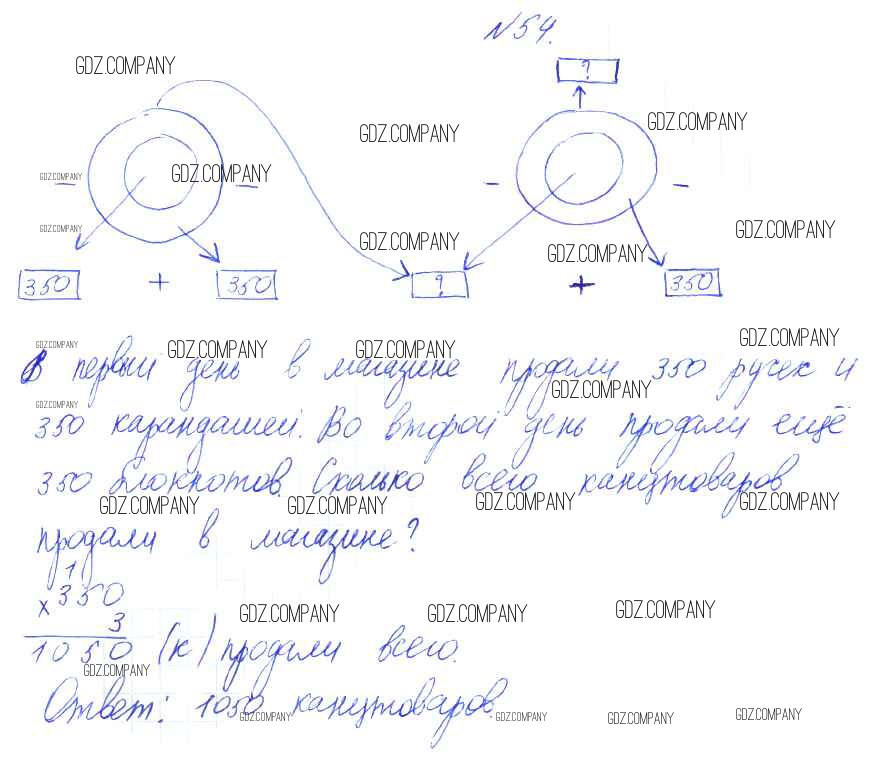 N54.
GDZ.COMPANY
?
GDZ.COMPANY GDZ.COMPANY
GDZ.COMPANY - GDZ.COMPANY - - -
GDZ.COMPANY GDZ.COMPANY GDZ.COMPANY GDZ.COMPANY
350 + 350 ? + 350
GDZ.COMPANY GDZ.COMPANY GDZ.COMPANY GDZ.COMPANY
В первый день в магазине продали 350 ручек и
GDZ.COMPANY GDZ.COMPANY
350 карандашей. Во второй день продали ещё
350 блокнотов. Сколько всего канцтоваров
GDZ.COMPANY GDZ.COMPANY GDZ.COMPANY GDZ.COMPANY
продали в магазине?
1
x 350
3
GDZ.COMPANY GDZ.COMPANY GDZ.COMPANY
1050 (к) продали всего.
GDZ.COMPANY
Ответ: 1050 канцтоваров.
GDZ.COMPANY GDZ.COMPANY GDZ.COMPANY GDZ.COMPANY